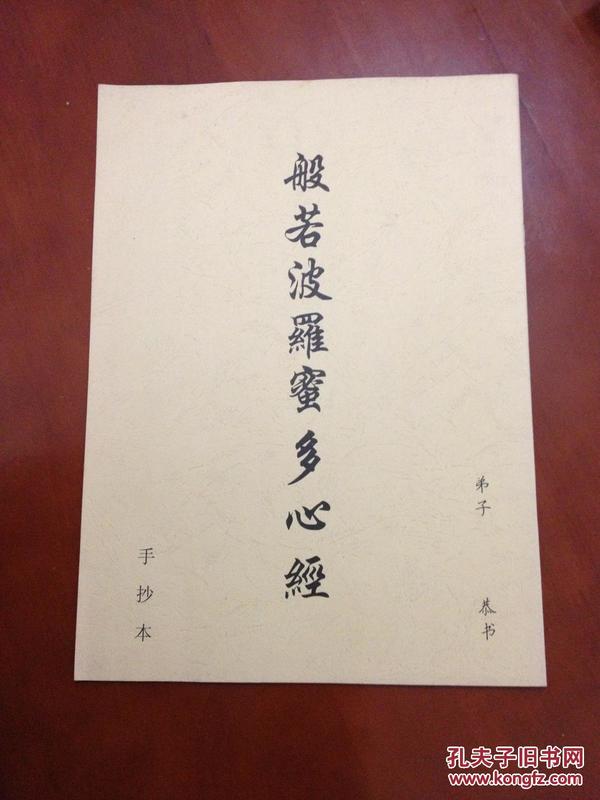 般若波羅蜜多心經
弟子
恭书
手抄本
孔夫子旧书网
www.kongfz.com